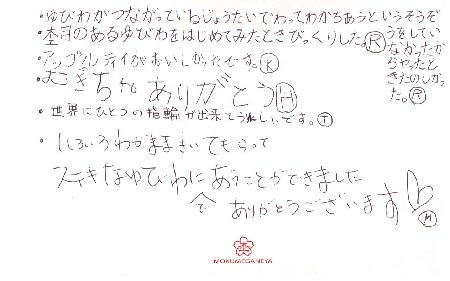 ・ゆびわがつながっているじょうたいでわってわかちあうというそうぞ
うをしてい
なかったか
らやったと
きたのしかっ
た。Ⓡ
・杢目のあるゆびわをはじめてみたときびっくりした。Ⓡ
・アップルティがおいしかったです。Ⓚ
・むぎちゃありがとうⒽ
・世界にひとつの指輪が出来てうれしいです。Ⓣ
・いろいろわがままきいてもらって
ステキなゆびわにであうことができました
ありがとうございます Ⓜ
MOKUMEGANEYA